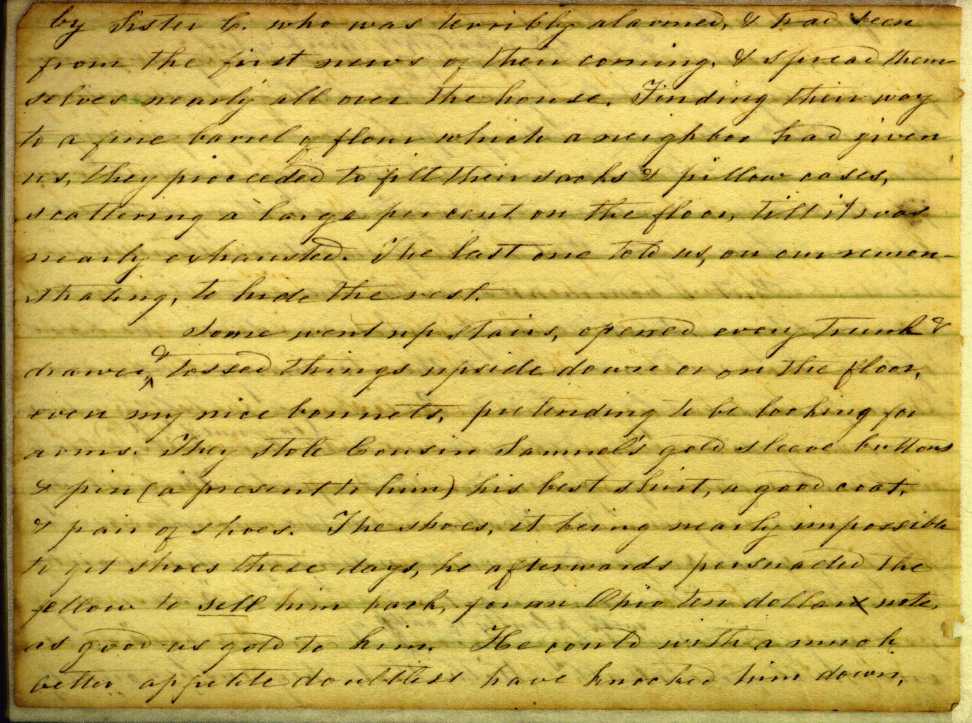 by Sister C. who was terribly alarmed, & had been
from the first news of their coming, & spread them-
selves nearly all over the house. Finding their way
to a fine barrel of flour which a neighbor had given
us, they proceeded to fill their sacks & pillow cases,
scattering a large per cent on the floor, till it was
nearly exhausted. The last one told us, on our remon-
strating, to hide the rest.
Some went up stairs, opened every trunk &
drawer, & tossed things upside down or on the floor,
even my nice bonnets, pretending to be looking for
arms. They stole Cousin Samuel's gold sleeve buttons
& pin (a present to him) his best shirt, a good coat,
& pair of shoes. The shoes, it being nearly impossible
to get shoes these days, he afterwards persuaded the
fellow to sell him back, for an Ohio ten dollar note,
as good as gold to him. He could with a much
better appetite doubtless have knocked him down,